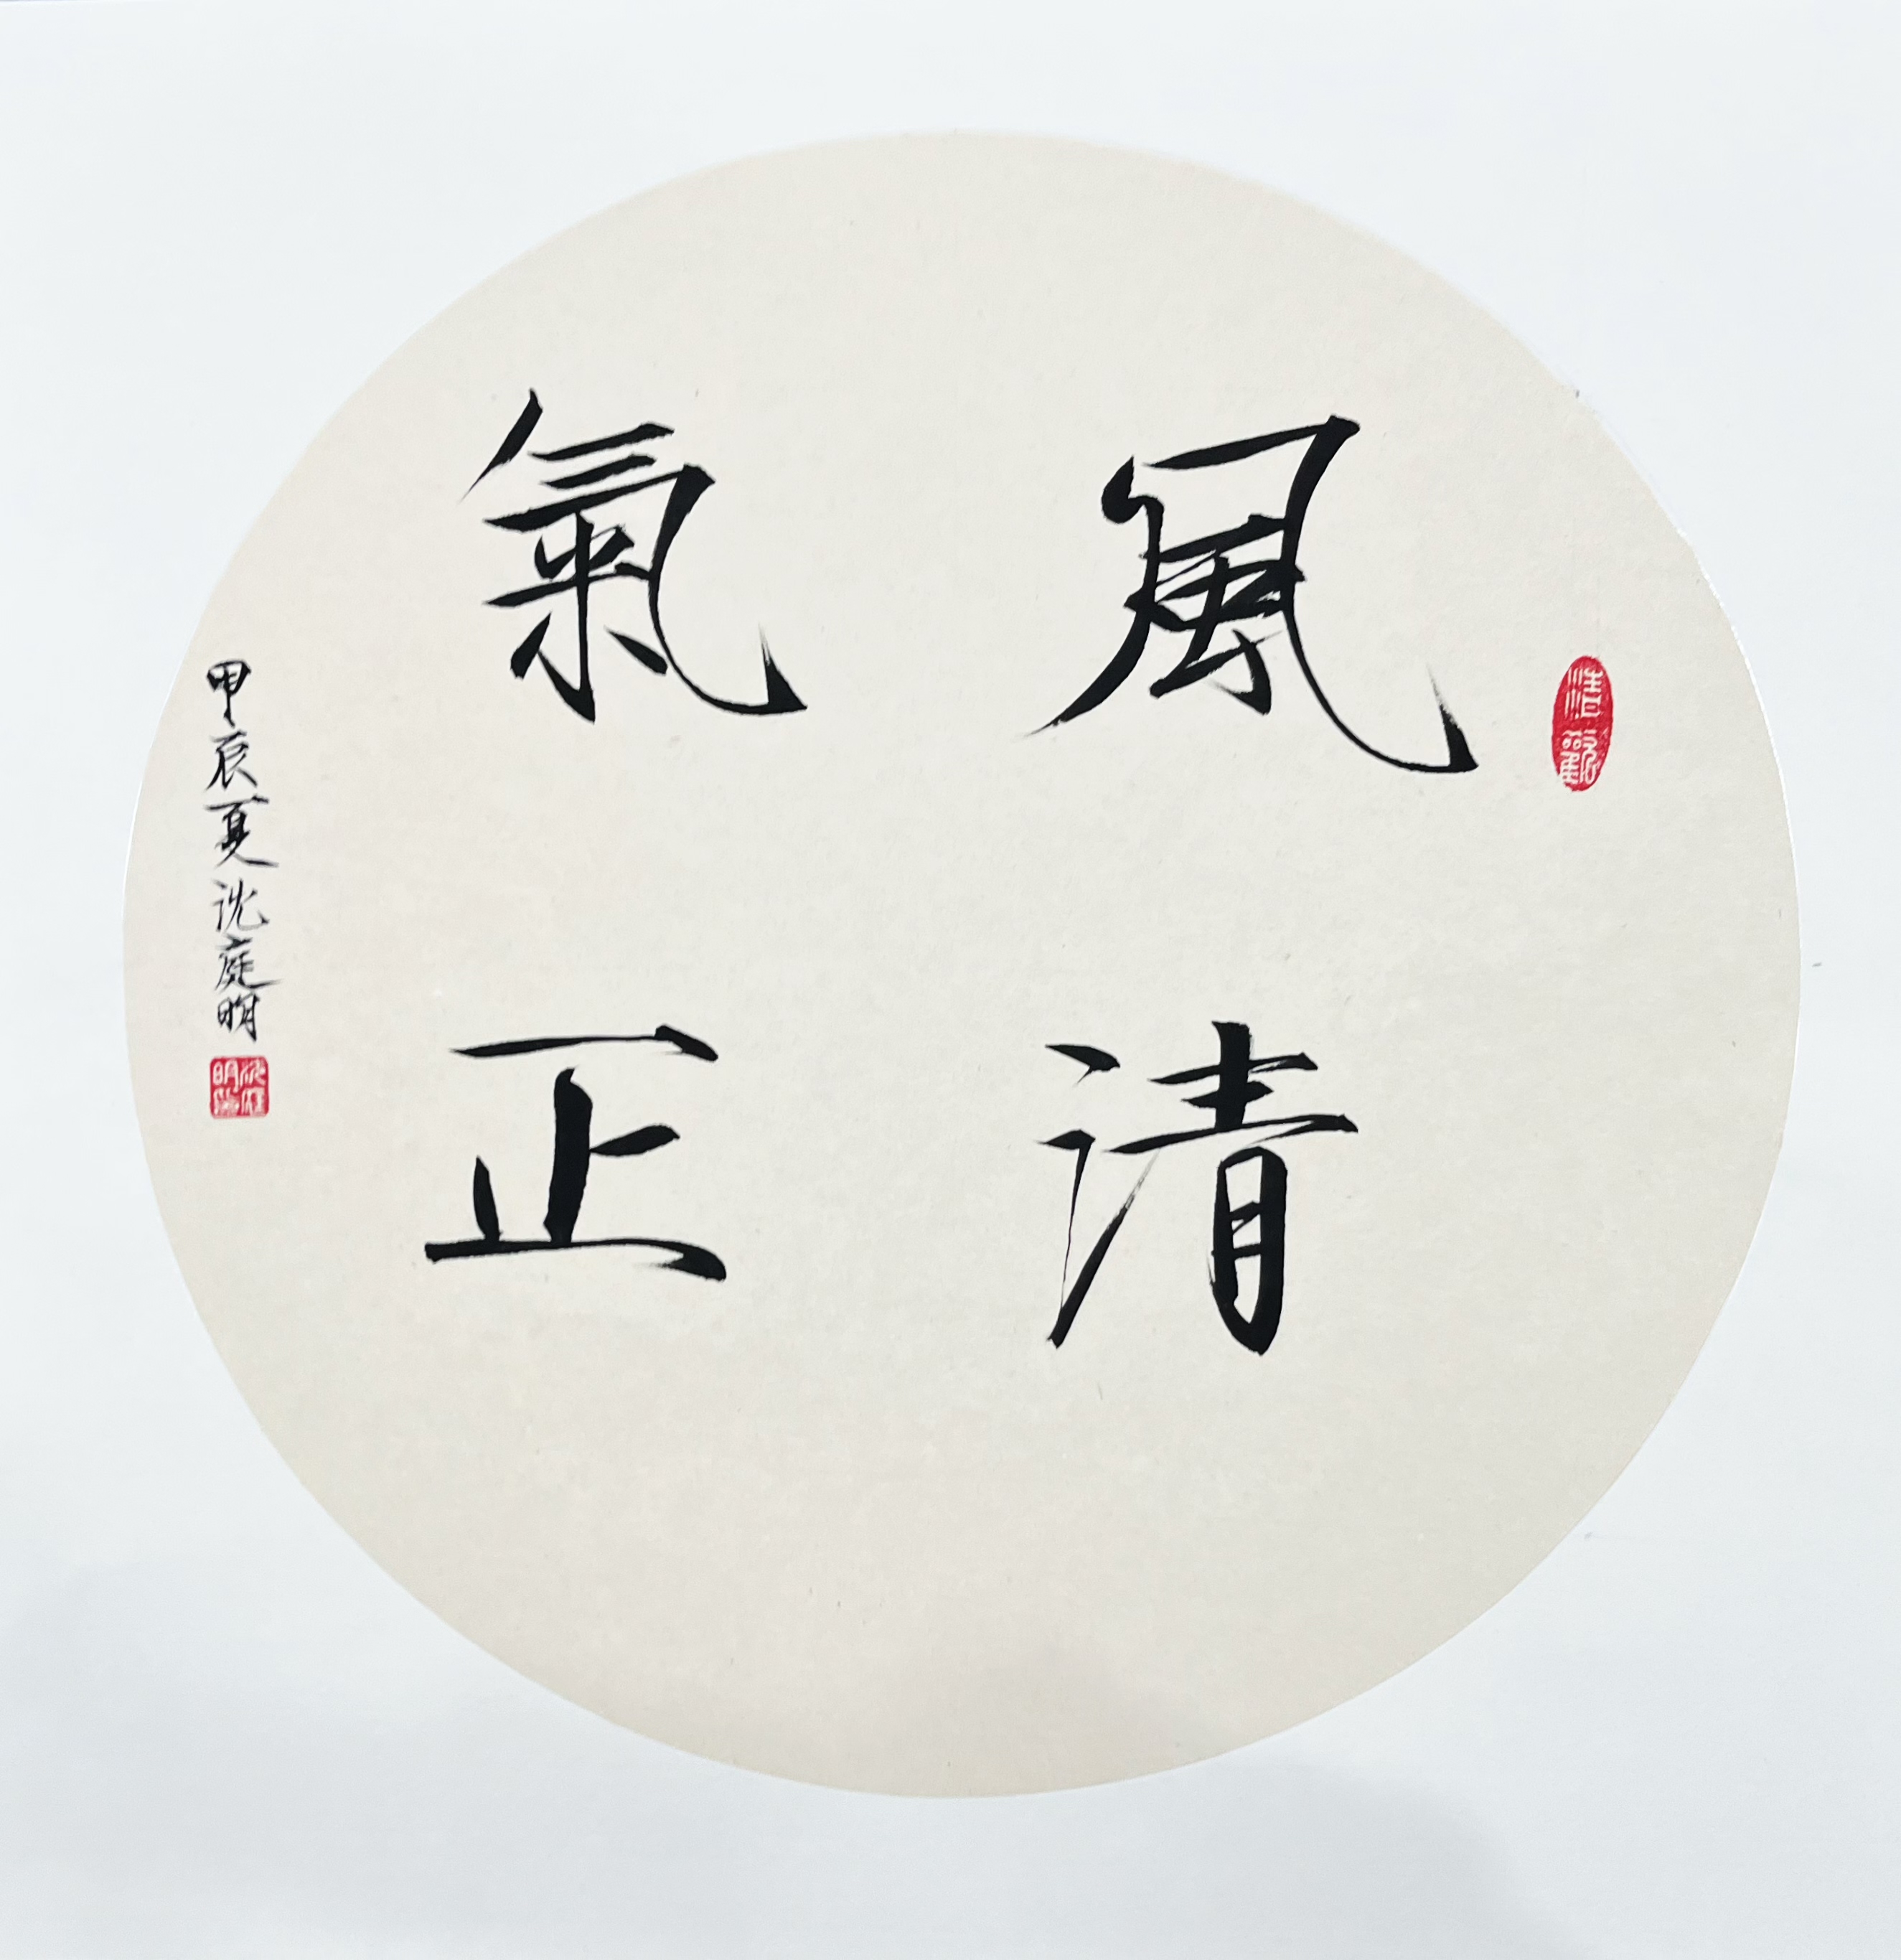 風清
氣正
甲辰夏沈庭明